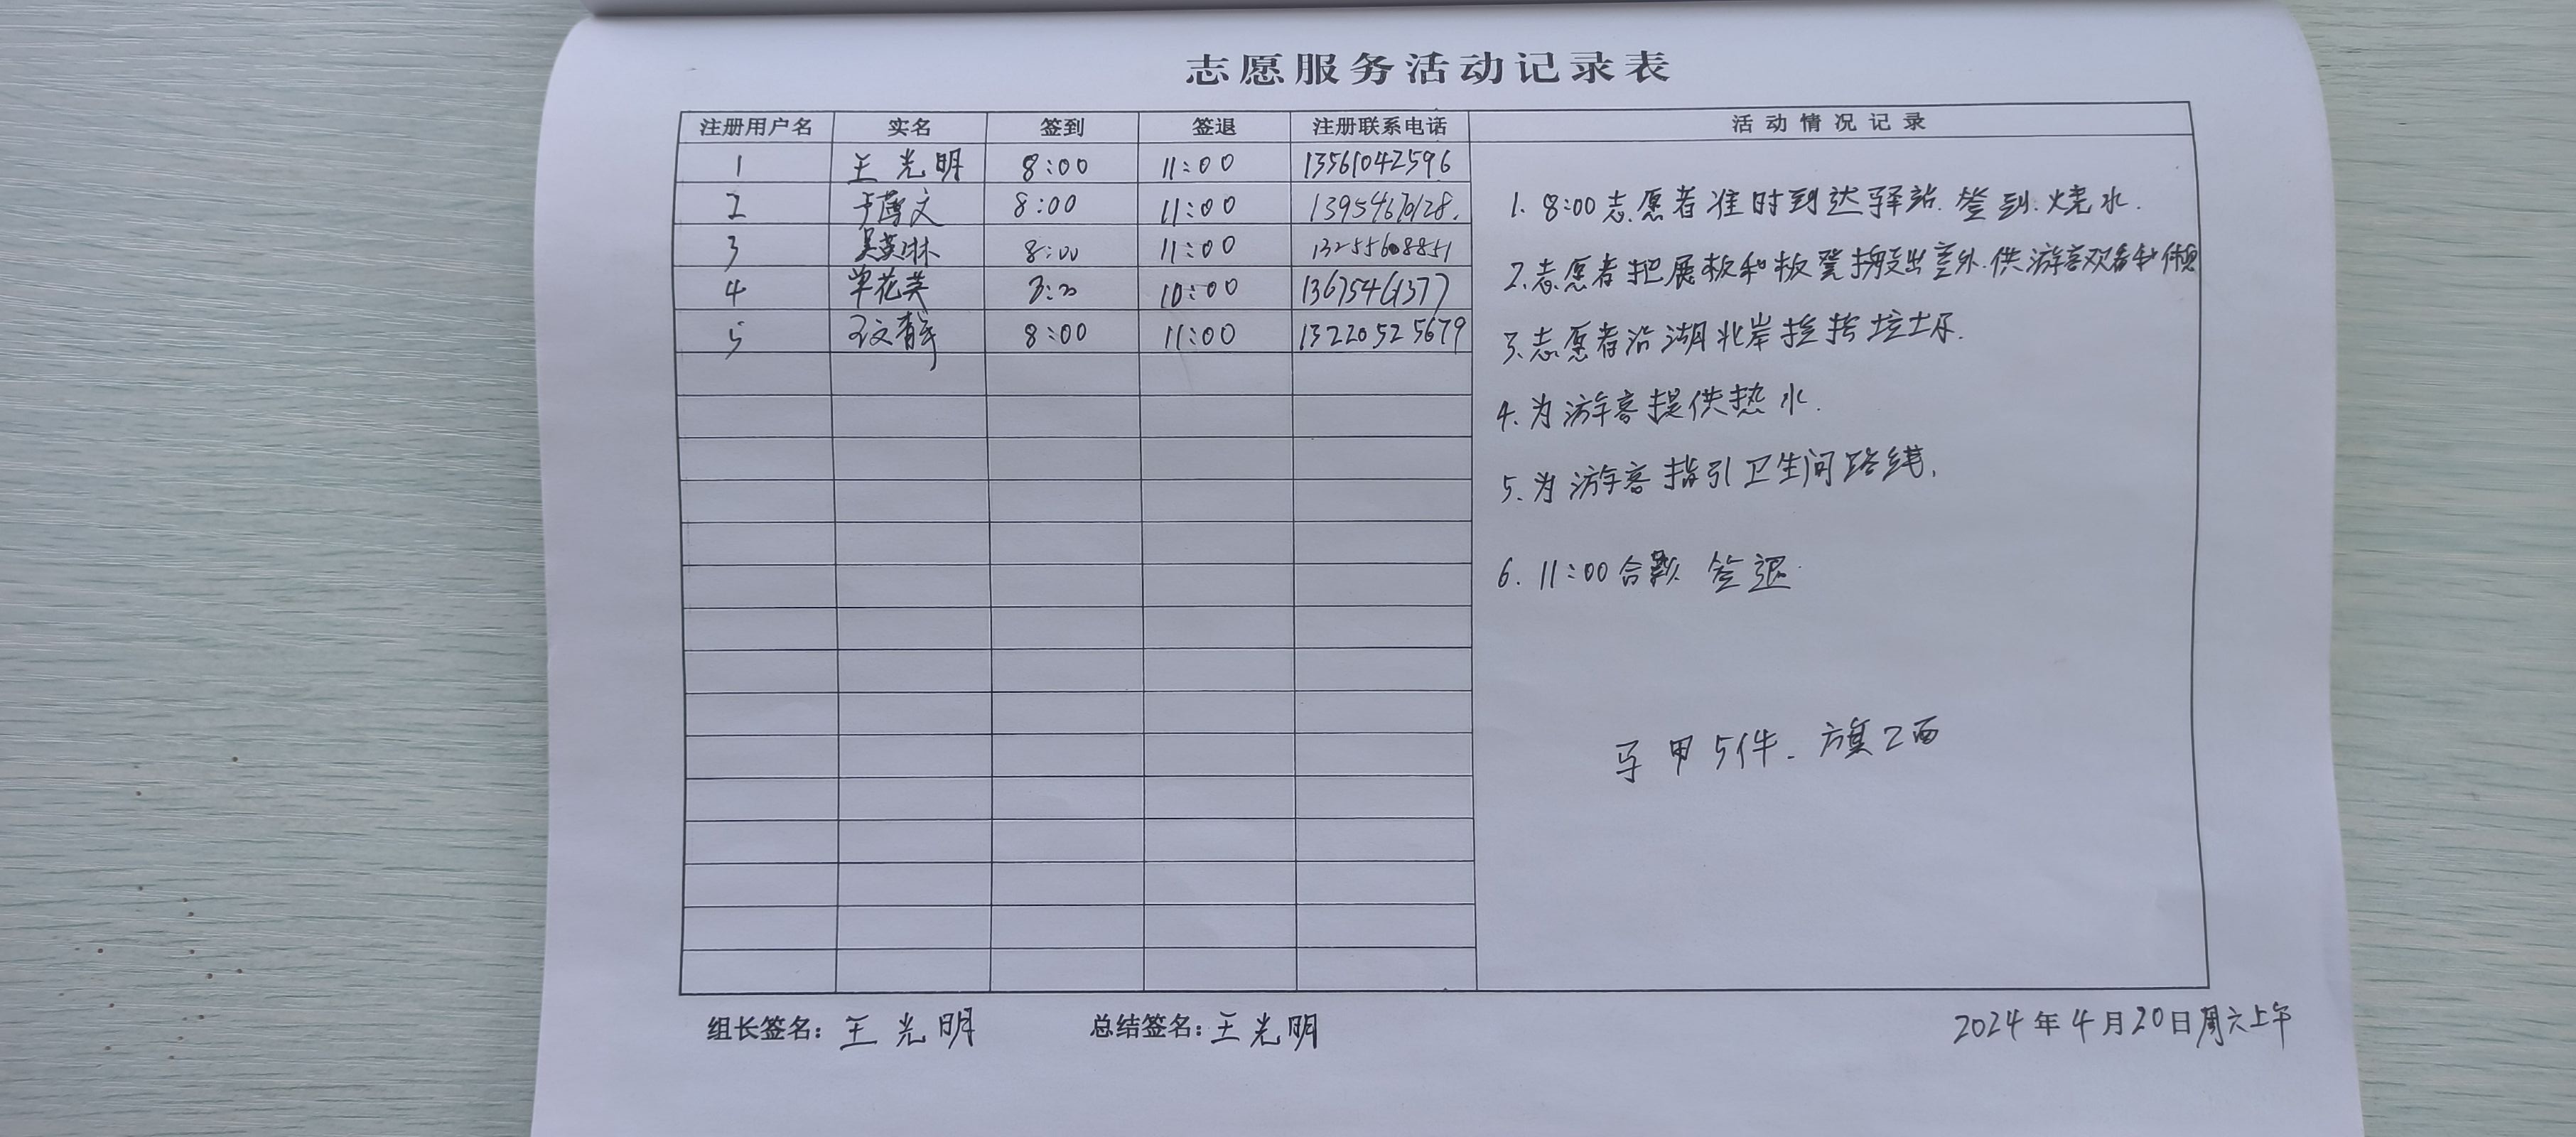 志愿服务活动记录表
注册用户名 实名 签到 签退 注册联系电话 活动情况记录
1 王光明 8:00 11:00 13561042596
2 8:00 11:00 13954670128.
3 吴英琳 8:00 11:00 13255608851
4 单花英 8:00 10:00 13675461377
5 文静 8:00 11:00 13220525679
1. 8:00志愿者准时到达驿站.签到.烧水.
2.志愿者把展板和板凳搬出室外.供游客观看和休息
3.志愿者沿湖北岸捡拾垃圾.
4.为游客提供热水.
5.为游客指引卫生间路线.
6. 11:00合影 签退.
马甲5件. 旗2面
组长签名: 王光明 总结签名: 王光明 2024年4月20日周六上午